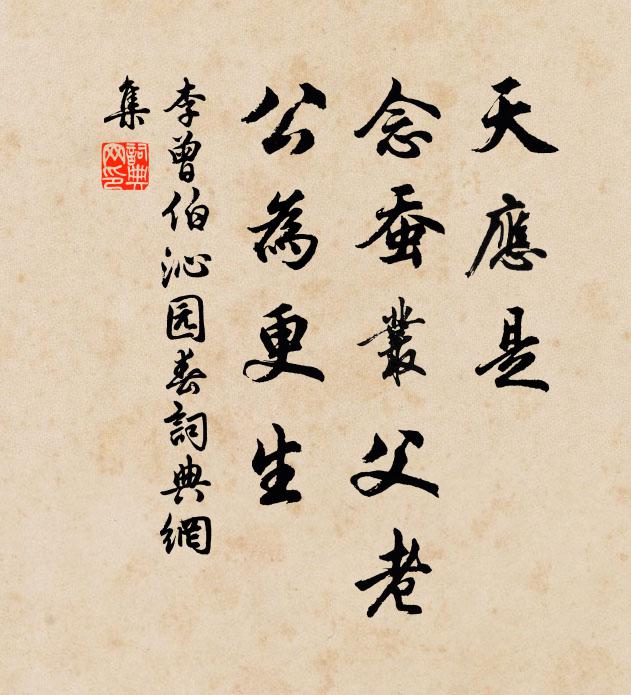 天應是
念蚕叢父老
公為更生
李曾伯沁园春詞典網
集
詞典
网印